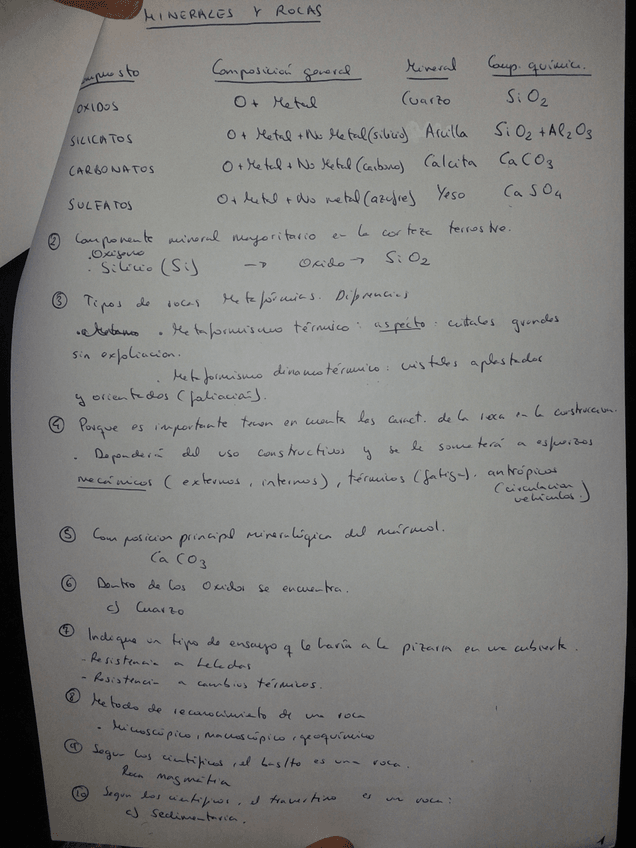 MINERALES Y ROCAS
Composición general Mineral Comp. química.
OXIDOS O + Metal Cuarzo SiO2
SILICATOS O + Metal + No Metal (silicio) Arcilla SiO2 + Al2O3
CARBONATOS O + Metal + No Metal (carbono) Calcita CaCO3
SULFATOS O + Metal + No metal (azufre) Yeso CaSO4
② Componente mineral mayoritario en la corteza terrestre.
. Oxígeno
. Silicio (Si) → Oxido → SiO2
③ Tipos de rocas Metafórmicas. Diferencias
. Metaformismo térmico: aspecto: cristales grandes
sin exfoliacion.
. Metaformismo dinamotérmico: cristales aplastados
y orientados (foliación).
④ Porque es importante tener en cuenta las caract. de la roca en la construccion.
. Dependerá del uso constructivo y se le someterá a esfuerzos
mecánicos (externos, internos), térmicos (fatiga), antrópicos
(circulacion
vehículos.)
⑤ Composicion principal mineralógica del mármol.
CaCO3
⑥ Dentro de los Oxidos se encuentra.
c) Cuarzo
⑦ Indique un tipo de ensayo q le haría a la pizarra en una cubierta.
- Resistencia a heladas
- Resistencia a cambios térmicos.
⑧ Metodo de reconocimiento de una roca
. Microscópico, macroscópico, geoquímico
⑨ Segun los científicos, el basalto es una roca.
Roca magmática
⑩ Segun los científicos, el travertino es una roca:
c) sedimentaria.
1